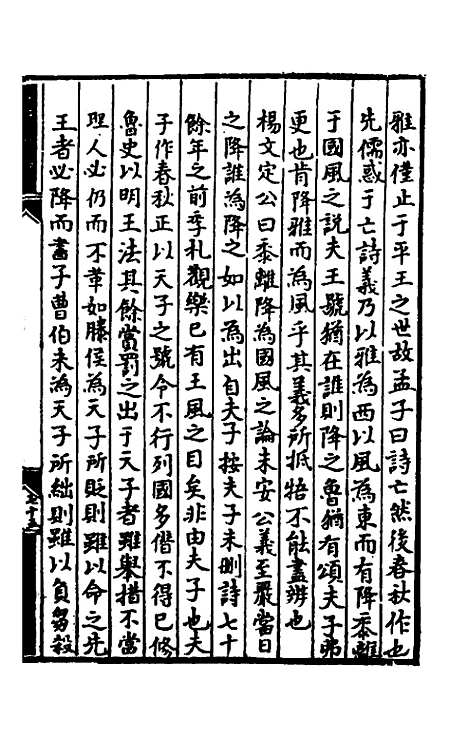 雅亦僅止于平王之世故孟子曰詩亡然後春秋作也
先儒惑于亡詩義乃以雅為西以風為東而有降黍離
于國風之說夫王號猶在誰則降之魯猶有頌夫子弗
更也肯降雅而為風乎其義多所抵牾不能盡辨也
楊文定公曰黍離降為國風之論未安公義至嚴當日
之降誰為降之如以為出自夫子按夫子未刪詩七十
餘年之前季札觀樂已有王風之目矣非由夫子也夫
子作春秋正以天子之號令不行列國多僭不得已修
魯史以明王法其餘賞罰之出于天子者雖舉措不當
聖人必仍而不革如滕侯為天子所貶則雖以命之先
王者必降而書子曹伯未為天子所絀則雖以負芻殺
七十五